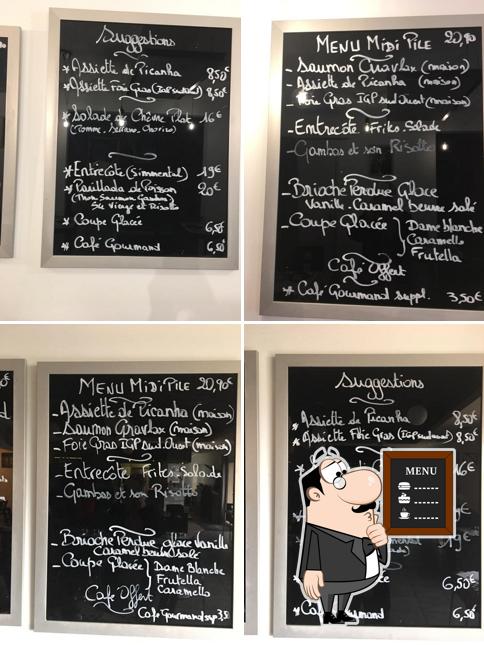 Suggestions
* Assiette de Picanha 8,50€
* Assiette Foie Gras (IGP sud ouest) 8,50€
* Salade de Chèvre Plat 16€
(Tomme, Serrano, Chorizo)
* Entrecôte (Simmental) 19€
* Parillada de Poisson 20€
(Thon Saumon Gambas)
Sce Vierge et Risotto
* Coupe Glacée 6,50€
* Café Gourmand 6,50€
MENU MiDi PiLE 20,90
- Saumon Gravlax (maison)
- Assiette de Picanha (maison)
- Foie Gras IGP sud.Ouest (maison)
- Entrecôte Frites Salade
- Gambas et son Risotto
- Brioche Perdue Glace
Vanille. Caramel beurre salé
- Coupe Glacée } Dame blanche
Caramello
Frutella
Café Offert
* Café Gourmand suppl. 3,50€
MENU MiDi PiLE 20,90€
- Assiette de Picanha (maison)
- Saumon Gravlax (maison)
- Foie Gras IGP sud.Ouest (maison)
- Entrecôte Frites.Salade
- Gambas et son Risotto
- Brioche Perdue glace Vanille
Caramel beurre salé
- Coupe Glacée } Dame Blanche
Frutella
Caramello
Café Offert
Café Gourmand sup 3,5
Suggestions
* Assiette de Picanha 8,50€
* Assiette Foie Gras (IGP sud ouest) 8,50€
MENU
6,50€
6,50€